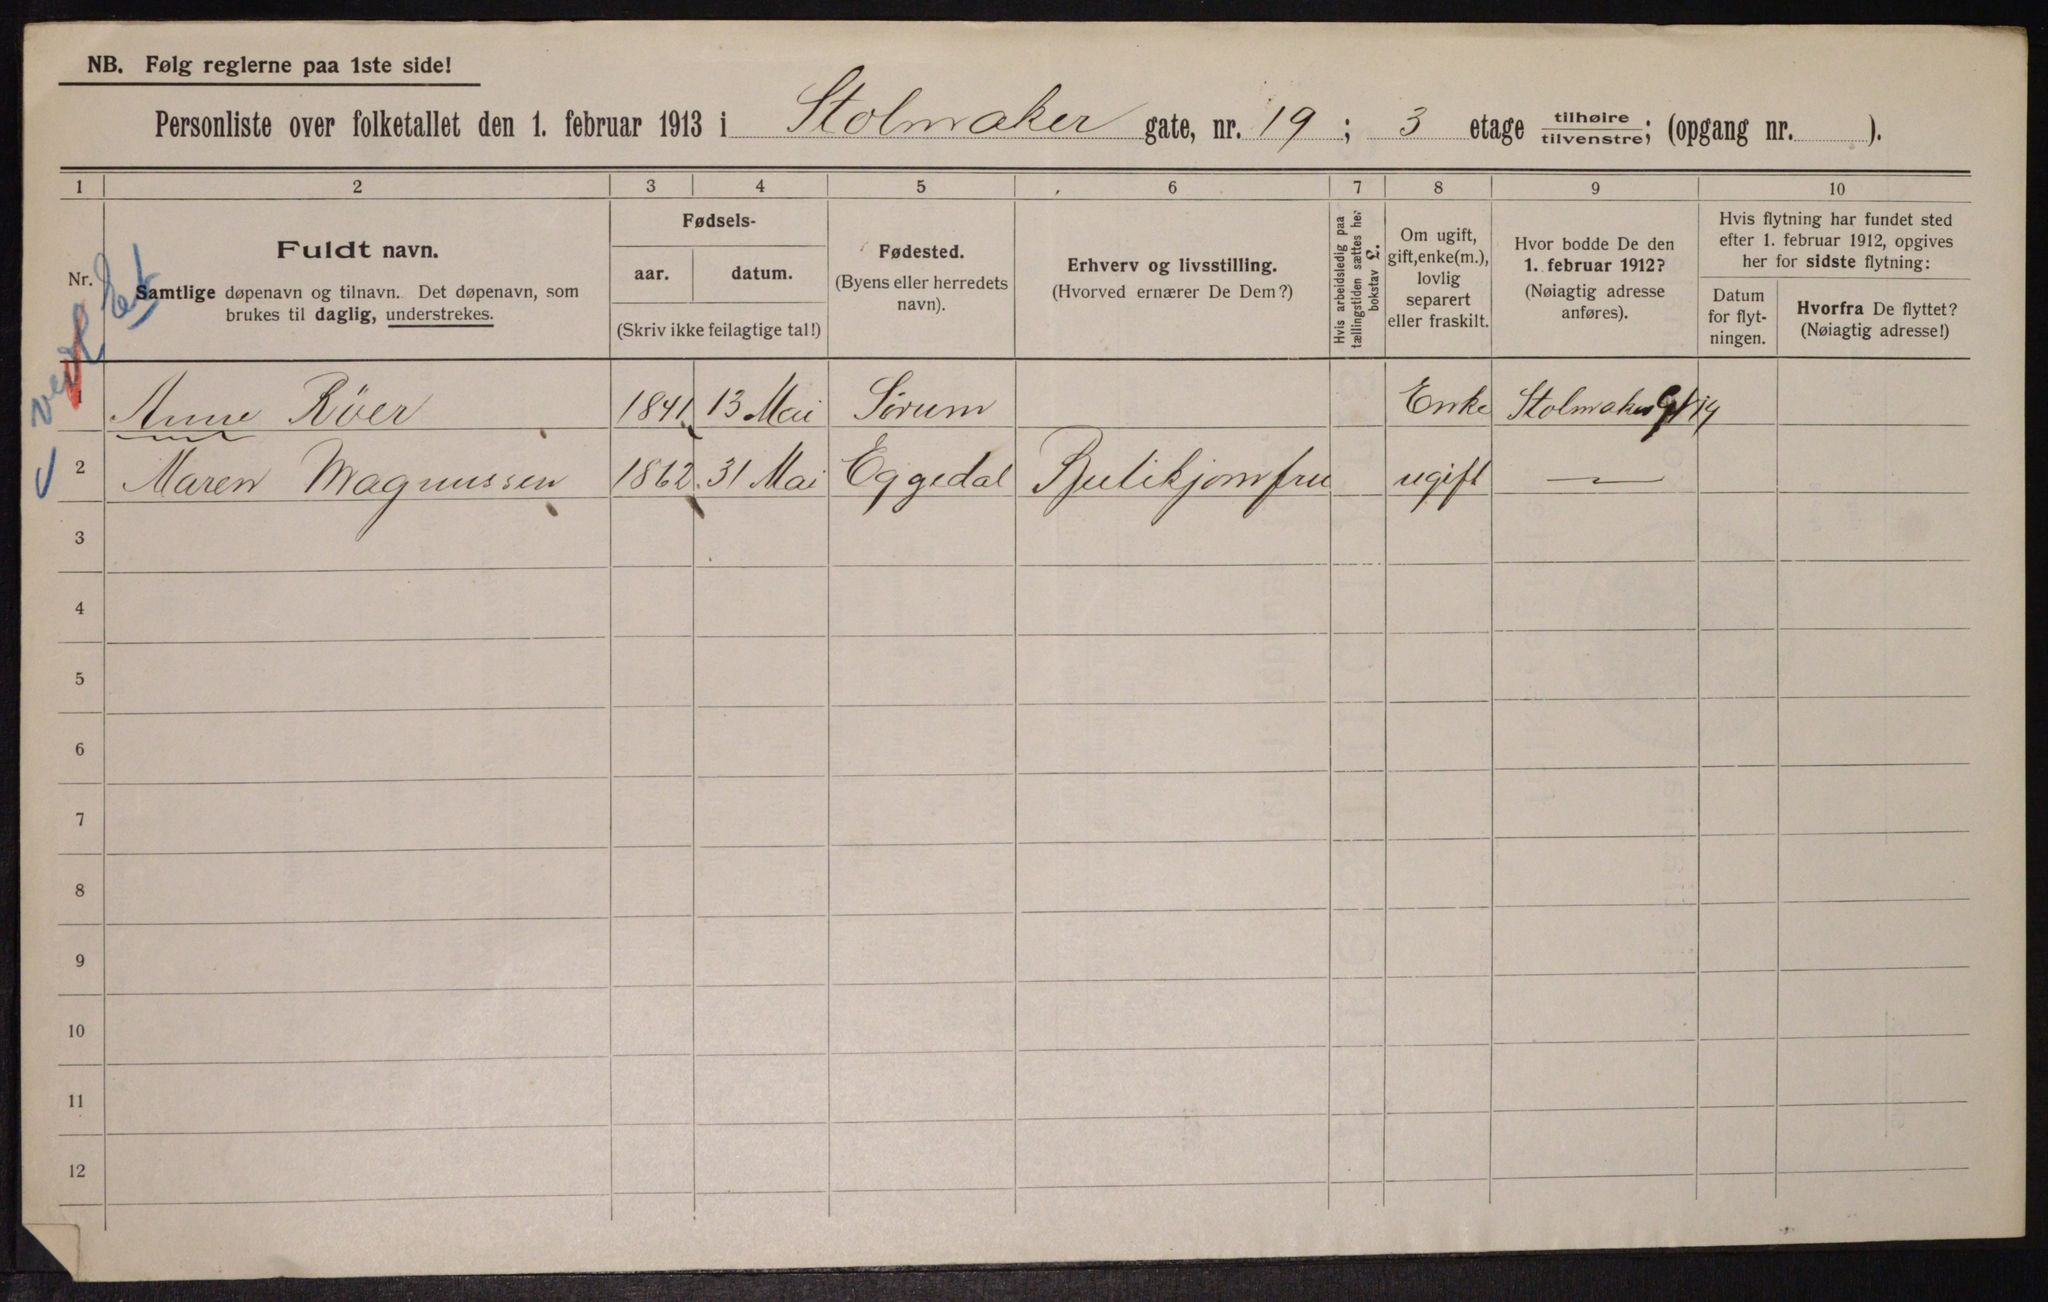 NB. Følg reglerne paa 1ste side!
Personliste over folketallet den 1. februar 1913 i Stolmaker gate, nr. 19; 3 etage tilhøire/tilvenstre; (opgang nr. ).
1 2 3 4 5 6 7 8 9 10
Nr.
Fuldt navn.
Samtlige døpenavn og tilnavn. Det døpenavn, som
brukes til daglig, understrekes.
Fødsels-
aar. datum.
(Skriv ikke feilagtige tal!)
Fødested.
(Byens eller herredets
navn).
Erhverv og livsstilling.
(Hvorved ernærer De Dem?)
Hvis arbeidsledig paa
tællingstiden sættes her
bokstav £.
Om ugift,
gift, enke(m.),
lovlig
separert
eller fraskilt.
Hvor bodde De den
1. februar 1912?
(Nøiagtig adresse
anføres).
Hvis flytning har fundet sted
efter 1. februar 1912, opgives
her for sidste flytning:
Datum
for flyt-
ningen.
Hvorfra De flyttet?
(Nøiagtig adresse!)
1 Anne Röer 1841 13 Mai Sørum Enke Stolmaker 19
2 Maren Magnussen 1862 31 Mai Eggedal Butikjomfru ugift —
3
4
5
6
7
8
9
10
11
12